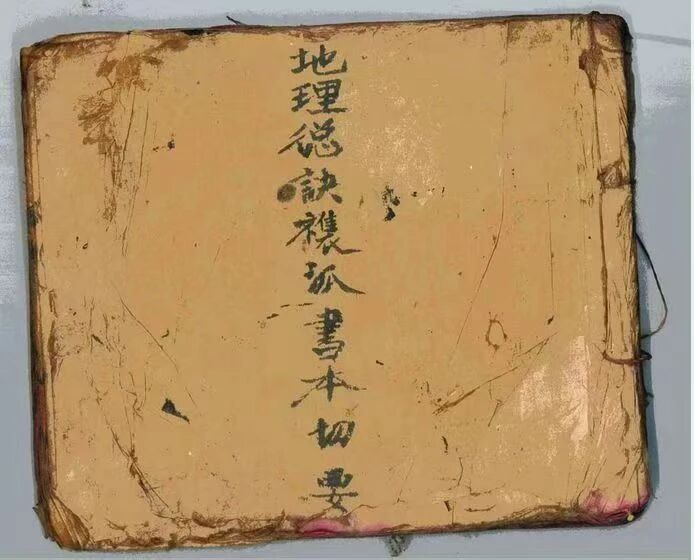 地理總訣書本切要